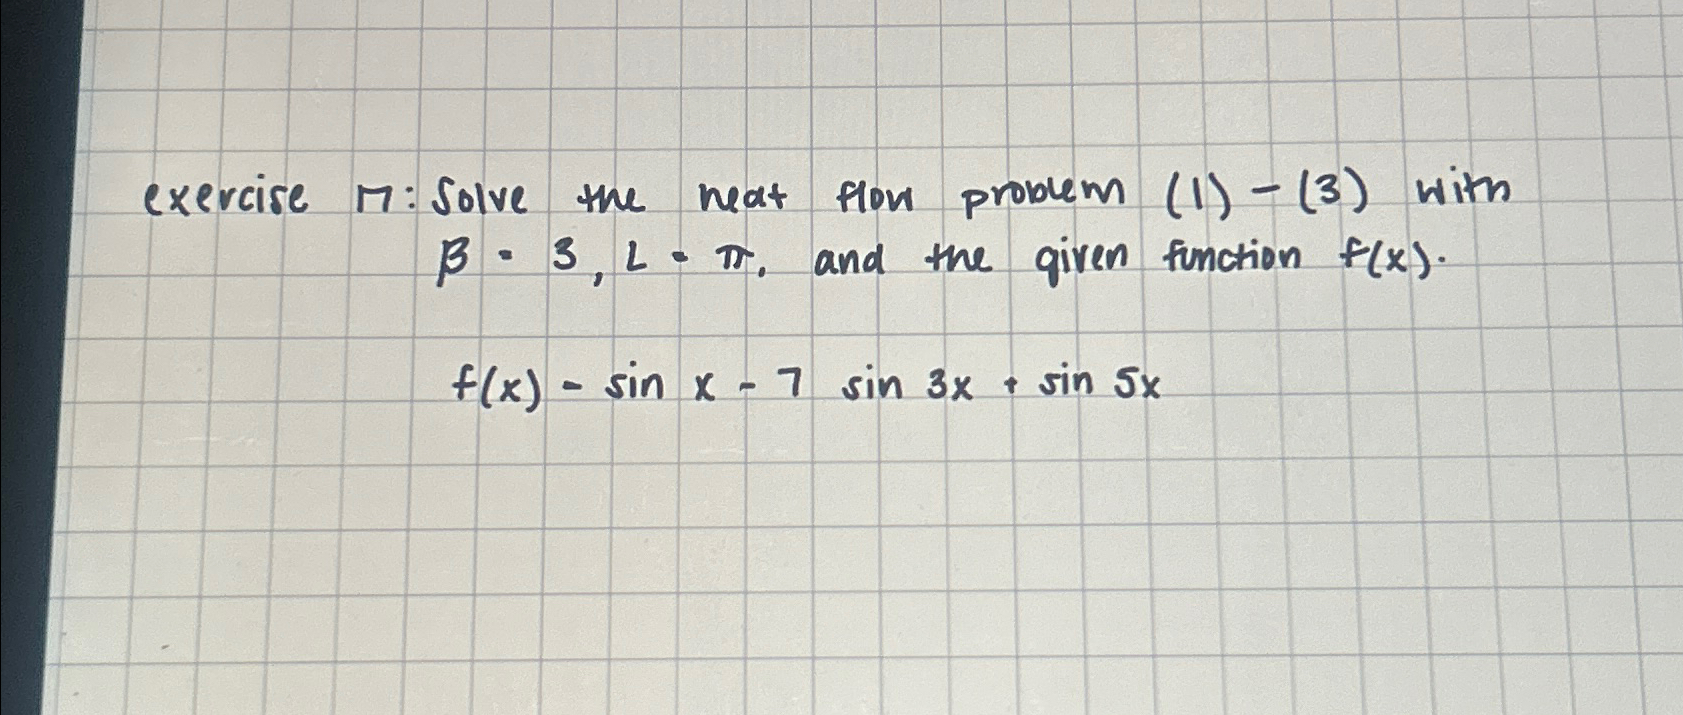 exercise 17: Solve the heat flow problem (1) - (3) with
β = 3, L = π, and the given function f(x).
f(x) = sin x - 7 sin 3x + sin 5x